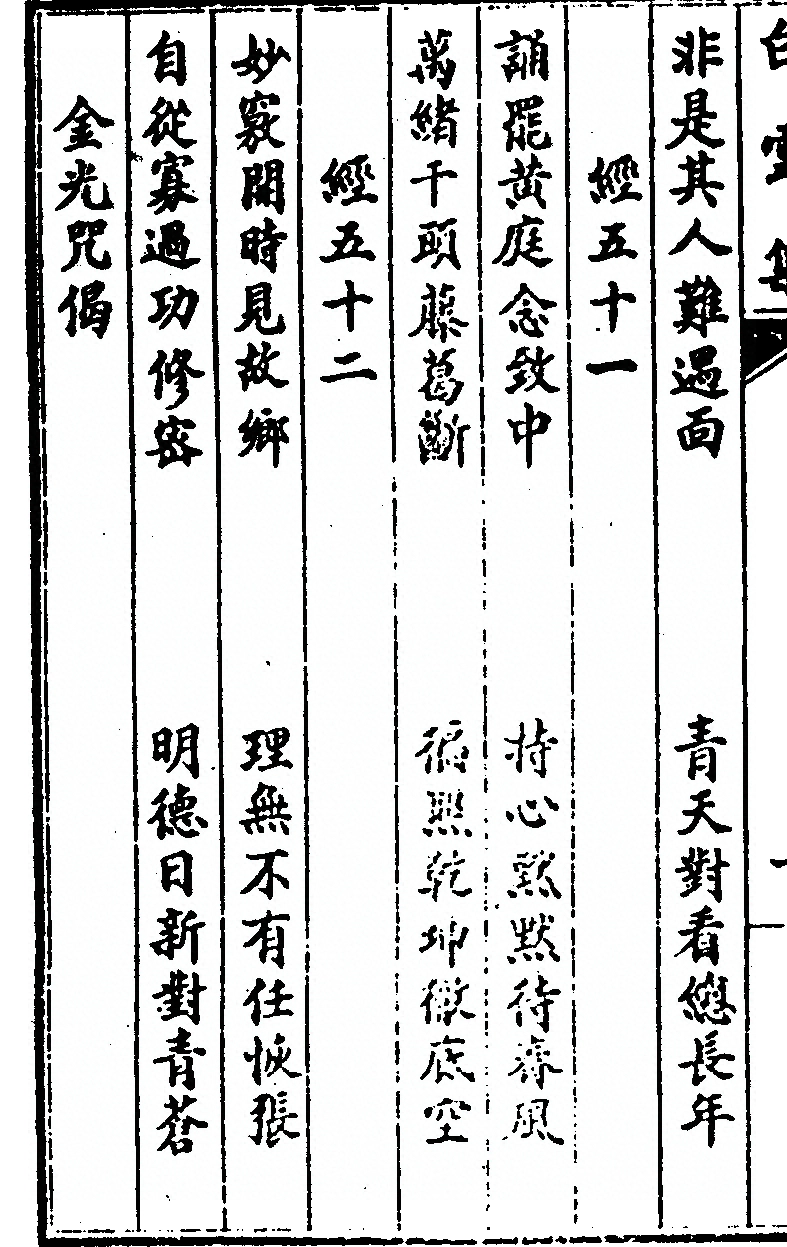 白雲集
非是其人難遇面　青天對看總長年
經五十一
誦罷黄庭念致中　持心默默待春風
萬緒千頭藤葛斷　徧照乾坤徹底空
經五十二
妙竅開時見故鄉　理無不有任恢張
自從寡過功修密　明德日新對青蒼
金光咒偈